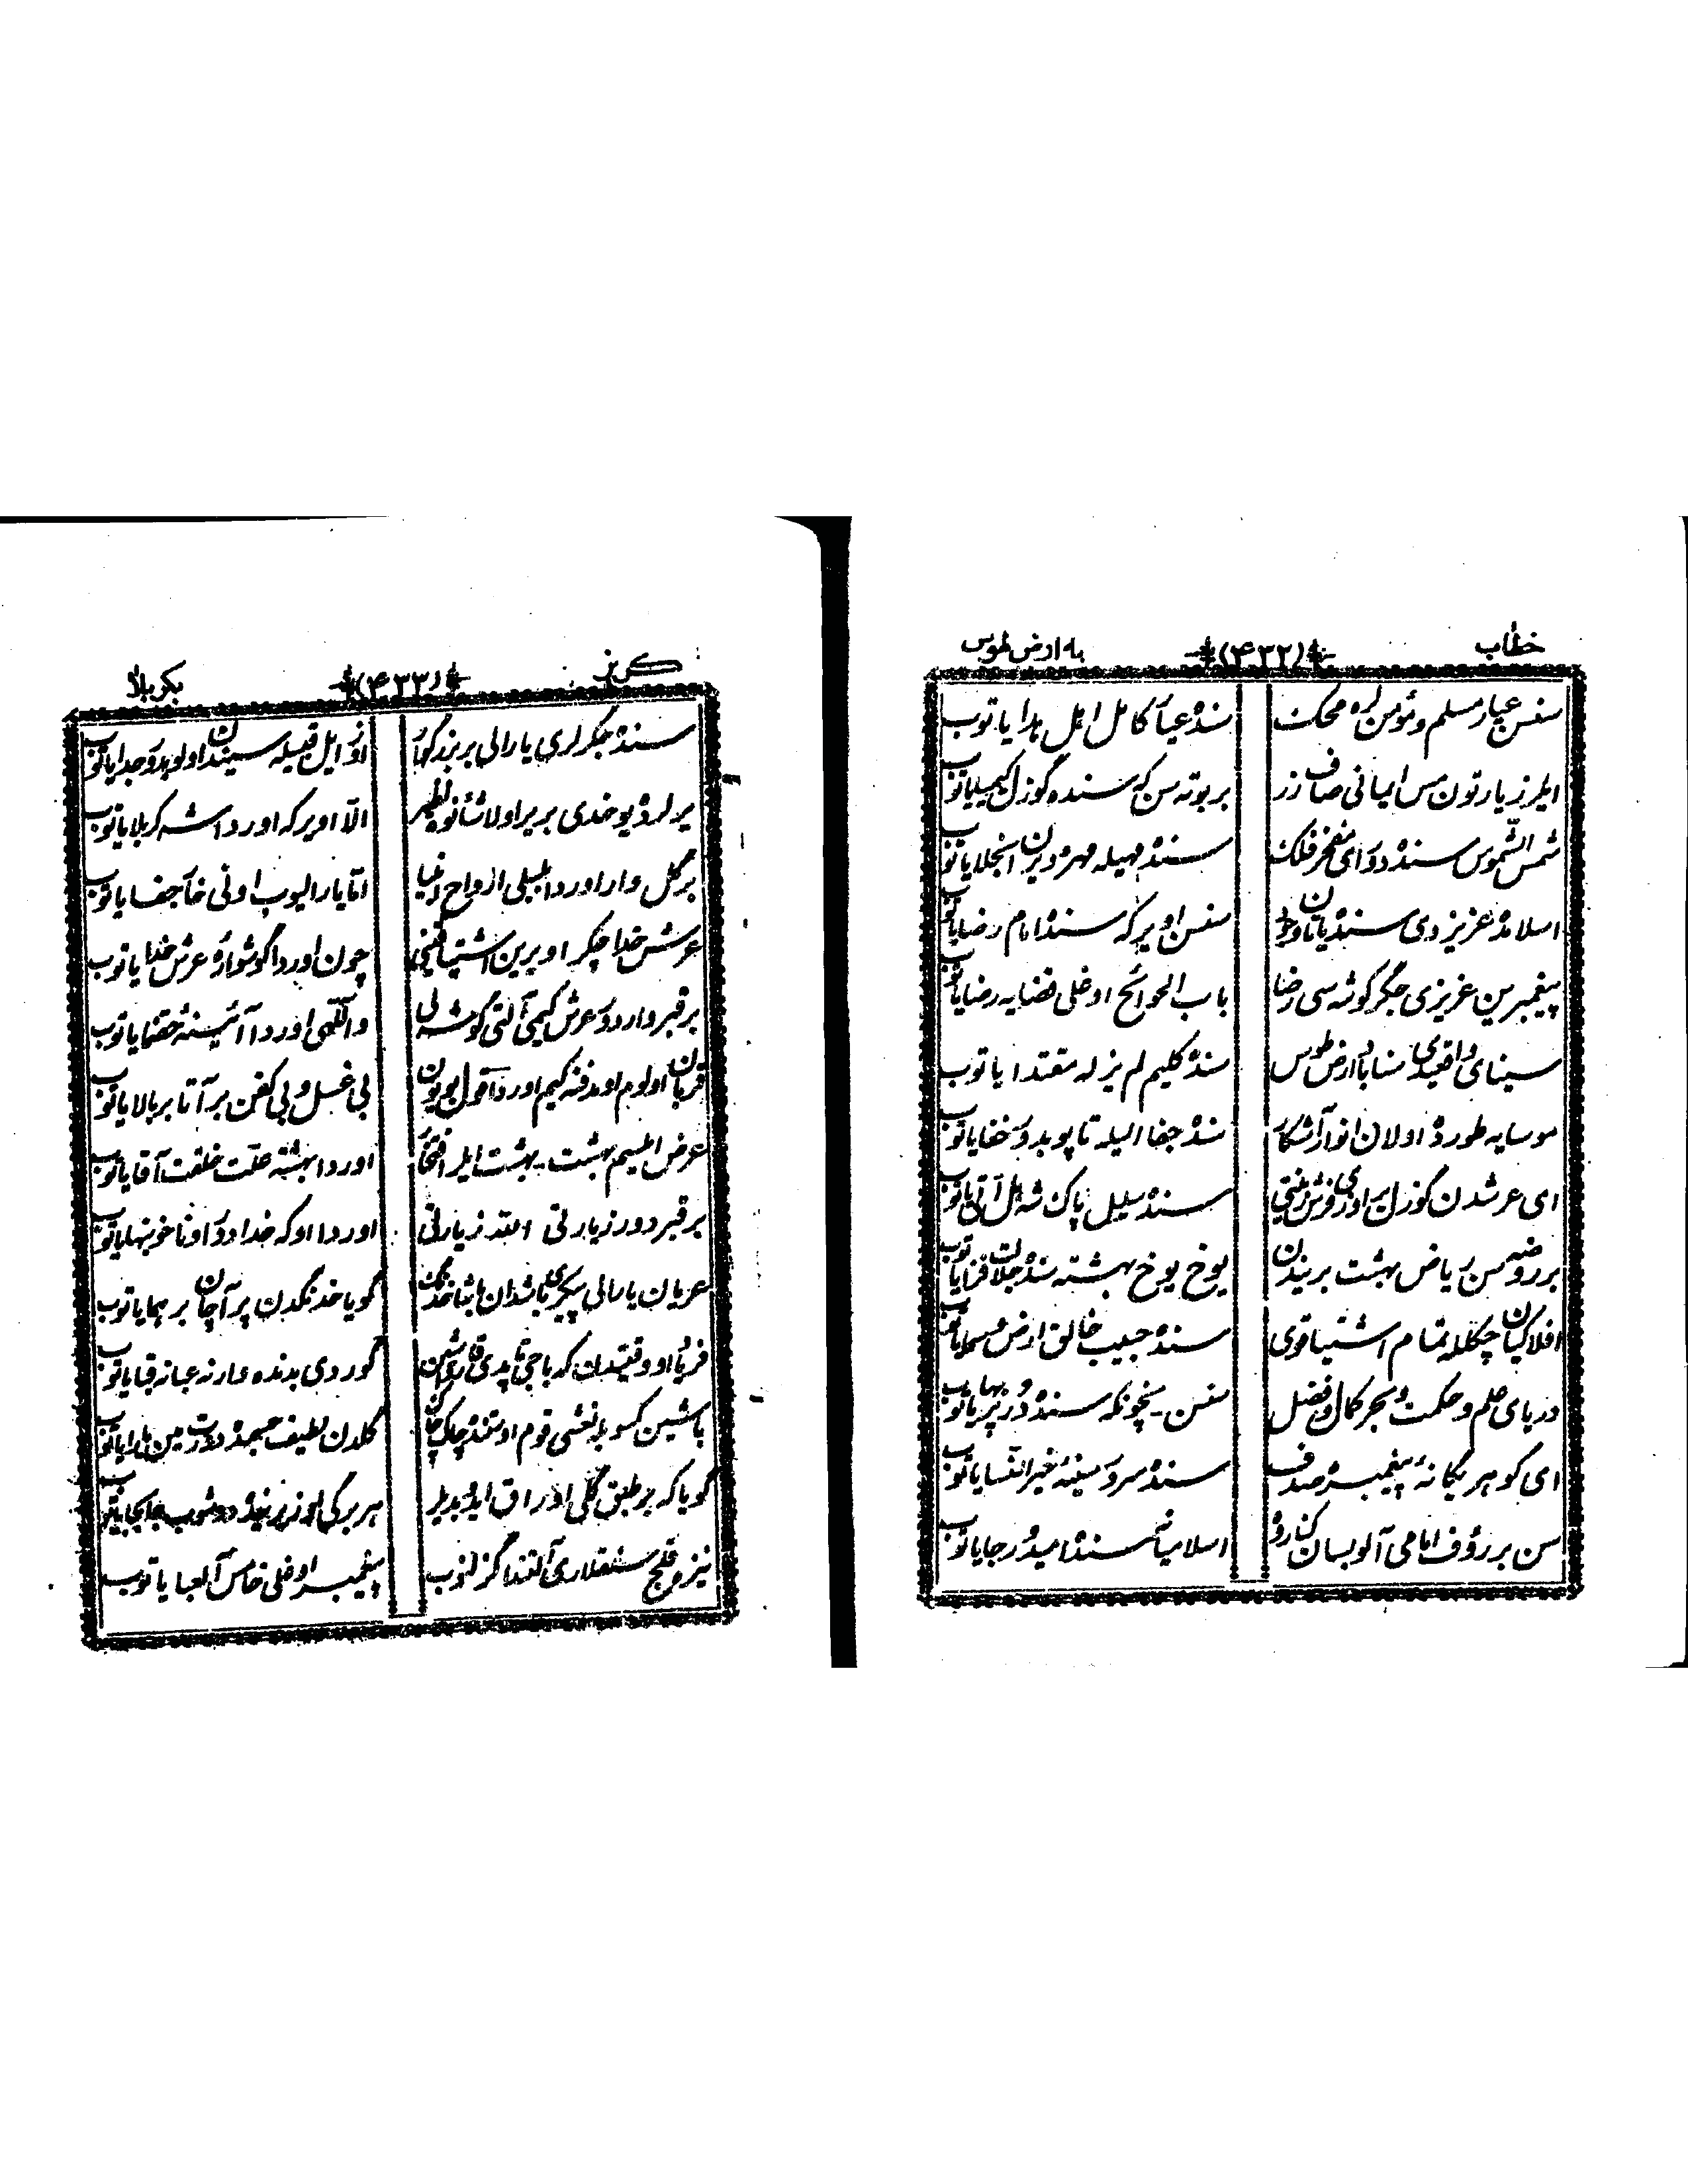 خطاب (۴۳۲) به ارض طوس
سنسن عیار مسلم و مؤمن لره محک سنده عیار کامل اهل هدا یاتوب
ایلر زیارتون مس ایمانی صاف زر بر بوته سن که سنده گوزل کیمیا یاتوب
شمس الشموس سنده دور ای مفخر فلک سنده مهیله مهره ویرن انجلا یاتوب
اسلامده عزیزدی سنده یاتان وجود سنسن او یر که سنده امام رضا یاتوب
پیغمبرین عزیزی جگر گوشه سی رضا باب الحوائج اوغلی قضایه رضا یاتوب
سینای واقعیدی مناباد ارض طوس سنده کلیم لم یزله مقتدا یاتوب
موسایه طورده اولان انوار آشکار سنده جفا الیله تاپوبدور خفا یاتوب
ای عرشدن گوزل بر اوزی فرش زینتی سنده سلیل پاک شه هل آتی یاتوب
بر روضه سن ریاض بهشت بریندن یوخ یوخ بهشته سنده جلالت فزا یاتوب
افلاکیان چکله تمام اشتیاقوی سنده حبیب خالق ارض و سما یاتوب
دریای علم و حکمت و بحر کمال و فضل سنسن نیچونکه سنده در پر بها یاتوب
ای گوهر یگانهٔ پیغمبره صدف سنده سرور سینهٔ خیر النسا یاتوب
سن بر رؤف امامی آلوبسان کناروه اسلامیانه سنده امید و رجا یاتوب
گریز (۴۳۳) بکربلا
سنده جگرلری یارالی بر بزرگوار اوز ایل قبیله سیندن اولوبدور جدا یاتوب
یرلرده یوخدی بر یر اولا شأنوه نظیر الا او یر که اوردا شه کربلا یاتوب
بر گل وار اوردا بلبلی ارواح انبیا امّا یارالیوب اونی خار جفا یاتوب
عرش خدا چکر او یرین اشتیاقینی چون اوردا گوشوارهٔ عرش خدا یاتوب
بر قبر وار دور عرش کیمی آلتی گوشه لی واللهی اوردا آئینهٔ حقنما یاتوب
قربان اولوم او مدفنه کیم اوردا قول بویون بی غسل و بی کفن بر آتا بر بالا یاتوب
عرض ایلسم بهشت، بهشت ایلر افتخار اوردا بهشته علت خلقت آقا یاتوب
بر قبردور زیارتی الله زیارتی اوردا او که خدادور اونا خونبها یاتوب
عریان یارالی پیکری باشدان باشا خدنگ گویا خدنگدن پر آچان بر هما یاتوب
فریاد او وقتیدن که باجی تاپدی قارداشین گوردی بدنده وار نه عبا نه قبا یاتوب
باشین کسوبله نعشی قوم اوستنده چاک چاک گلدن لطیف جسمده دورت مین یارا یاتوب
گویا که بر طبق گلی اوراق ایدوبدیلر هر برگی اوز یرینده دوشوب جابجا یاتوب
نیزه و قلج سنقلاری آلتندا گزلنوب پیغمبر اوغلی خامس آل عبا یاتوب